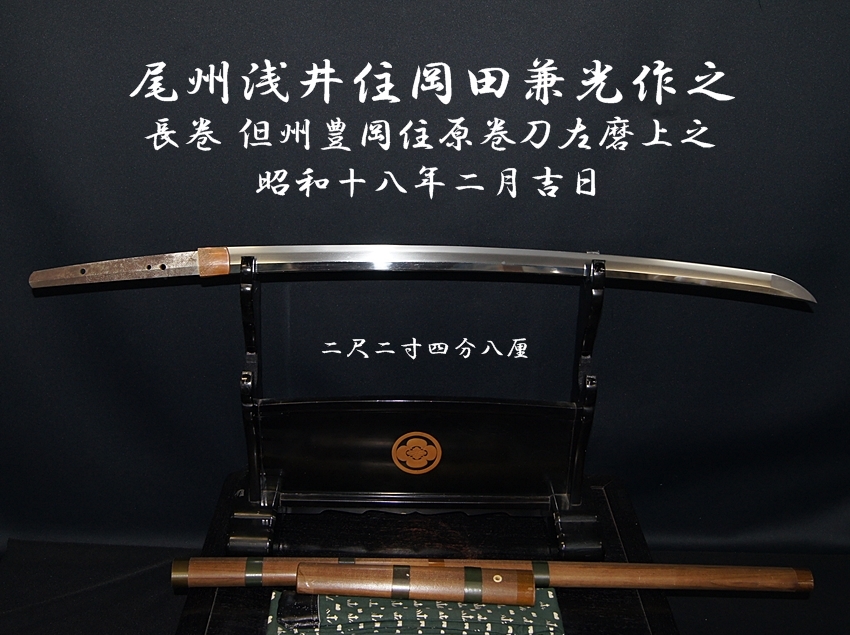 尾州浅井住岡田兼光作之
長巻 但州豊岡住原巻刀左磨上之
昭和十八年二月吉日
二尺二寸四分八厘